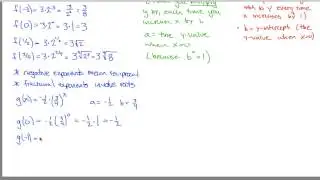 f(-3) = 3·2⁻³ = 3/2³ = 3/8
f(0) = 3·2⁰ = 3·1 = 3
f(½) = 3·2^(1/2) = 3√2
f(³⁄₂) = 3·2^(3/2) = 3√2³ = 3√8
* negative exponents mean reciprocal
* fractional exponents involve roots
g(x) = -½(¾)ˣ a = -½ b = ¾
g(0) = -½(¾)⁰ = -½·1 = -½
g(-1) =
y by, each time you
increase x by 1
a = the y value
when x=0
(because b⁰=1)
b y every time
x increases by 1)
a = y-intercept (the
y value when x=0)